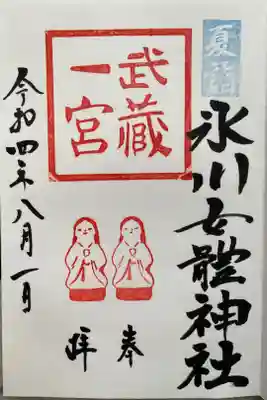 夏詣
氷川女體神社
武蔵
一宮
奉
拝
令和四年八月一日